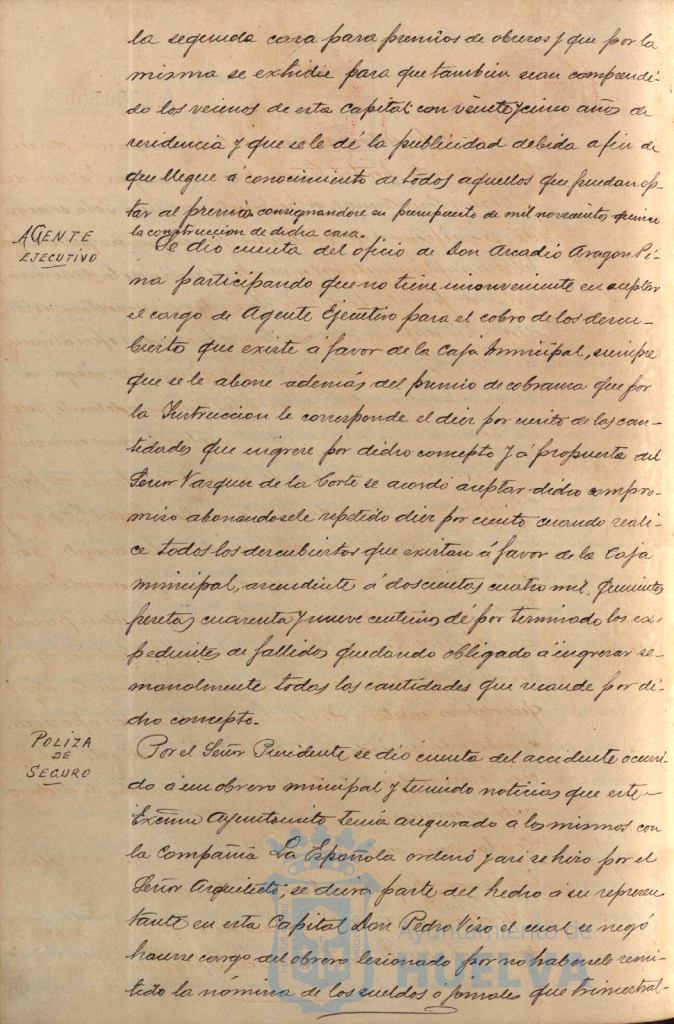 la segunda casa para premios de obreros y que por la
misma se extudie para que tambien sean comprendi-
do los vecinos de esta Capital con veinte y cinco años de
residencia y que se le dé la publicidad debida a fin de
que llegue á conocimiento de todos aquellos que puedan op-
tar al premio, consignandose en presupuesto de mil novecientos quince
la construccion de dicha casa.
AGENTE
EJECUTIVO
Se dio cuenta del oficio de Don Arcadio Aragon Pi-
na participando que no tiene inconveniente en aceptar
el cargo de Agente Ejecutivo para el cobro de los descu-
bierto que existe á favor de la Caja Municipal, siempre
que se le abone además del premio de cobranza que por
la Instruccion le corresponde el diez por ciento de las can-
tidades que ingrese por dicho concepto y á propuesta del
Señor Vazquez de la Corte se acordó aceptar dicho compro-
miso abonandosele repetido diez por ciento cuando reali-
ce todos los descubiertos que existan á favor de la Caja
municipal, ascendiente á doscientas cuatro mil quinientas
pesetas cuarenta y nueve centimos dé por terminado los ex-
pedientes de fallidos quedando obligado a ingresar se-
manalmente todas las cantidades que recaude por di-
cho concepto.
POLIZA
DE
SEGURO
Por el Señor Presidente se dió cuenta del accidente ocurri-
do á un obrero municipal y teniendo noticias que este
Excmo Ayuntamiento tenia asegurado á los mismos con
la Compañia La Española ordenó y asi se hizo por el
Señor Arquitecto, se diera parte del hecho á su represen-
tante en esta Capital Don Pedro Viso el cual se negó
hacerse cargo del obrero lesionado por no habersele remi-
tido la nómina de los sueldos o jornales que trimestral-
Ayuntamiento de
HUELVA